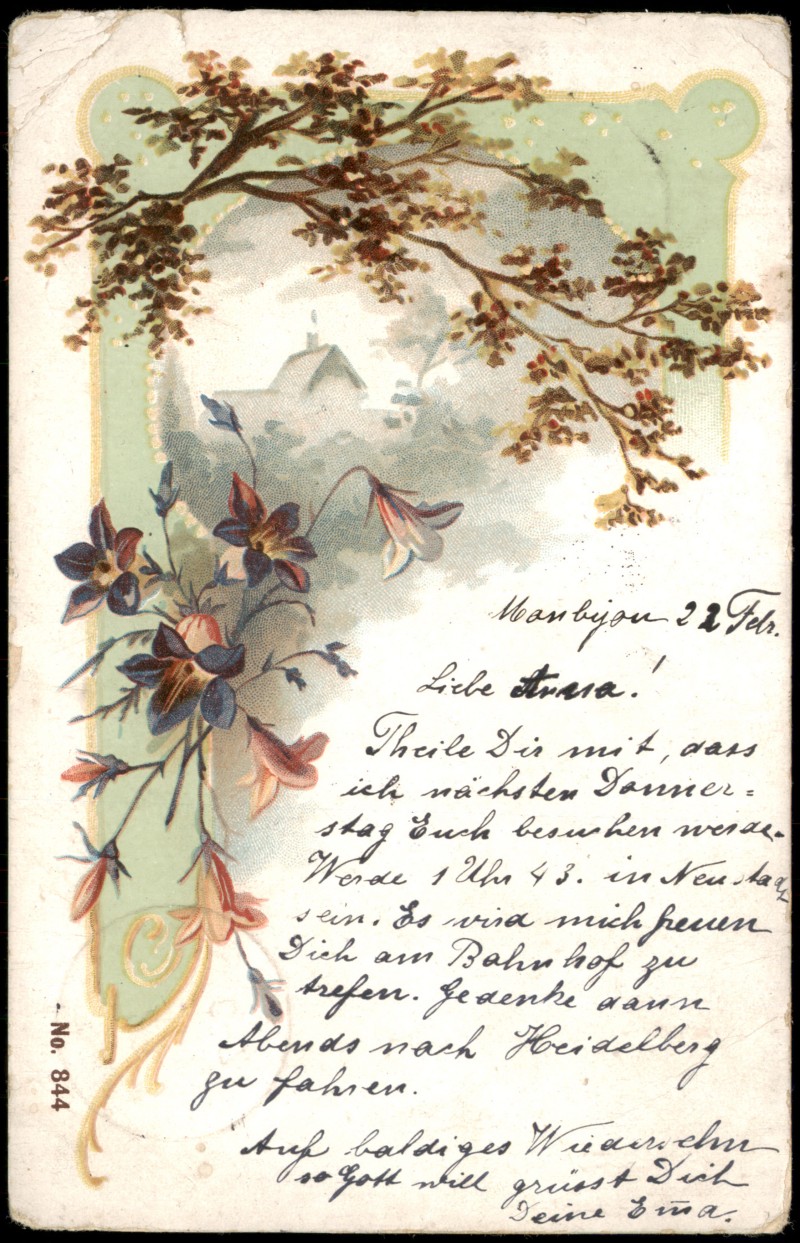 Monbijou 22 Febr.
Liebe Anna!
Theile Dir mit, dass
ich nächsten Donner=
stag Euch besuchen werde.
Werde 1 Uhr 43. in Neustadt
sein. Es wird mich freuen
Dich am Bahnhof zu
trefen. Gedenke dann
Abends nach Heidelberg
zu fahren.
Auf baldiges Wiedersehn
so Gott will grüsst Dich
Deine Em̄a.
No. 844